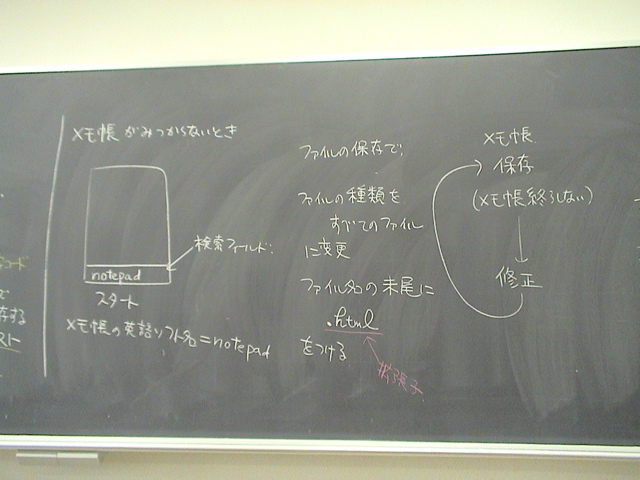 コード
で
存する
スト
メモ帳がみつからないとき
検索フィールド
notepad
スタート
メモ帳の英語ソフト名=notepad
ファイルの保存で、
ファイルの種類を
すべてのファイル
に変更
ファイル名の末尾に
.html
をつける
拡張子
メモ帳
保存
(メモ帳終了しない)
修正